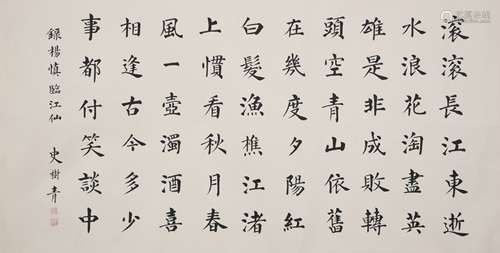 滚滚長江東逝
水浪花淘盡英
雄是非成敗轉
頭空青山依舊
在幾度夕陽紅
白髮漁樵江渚
上慣看秋月春
風一壺濁酒喜
相逢古今多少
事都付笑談中
録楊慎臨江仙 史樹青